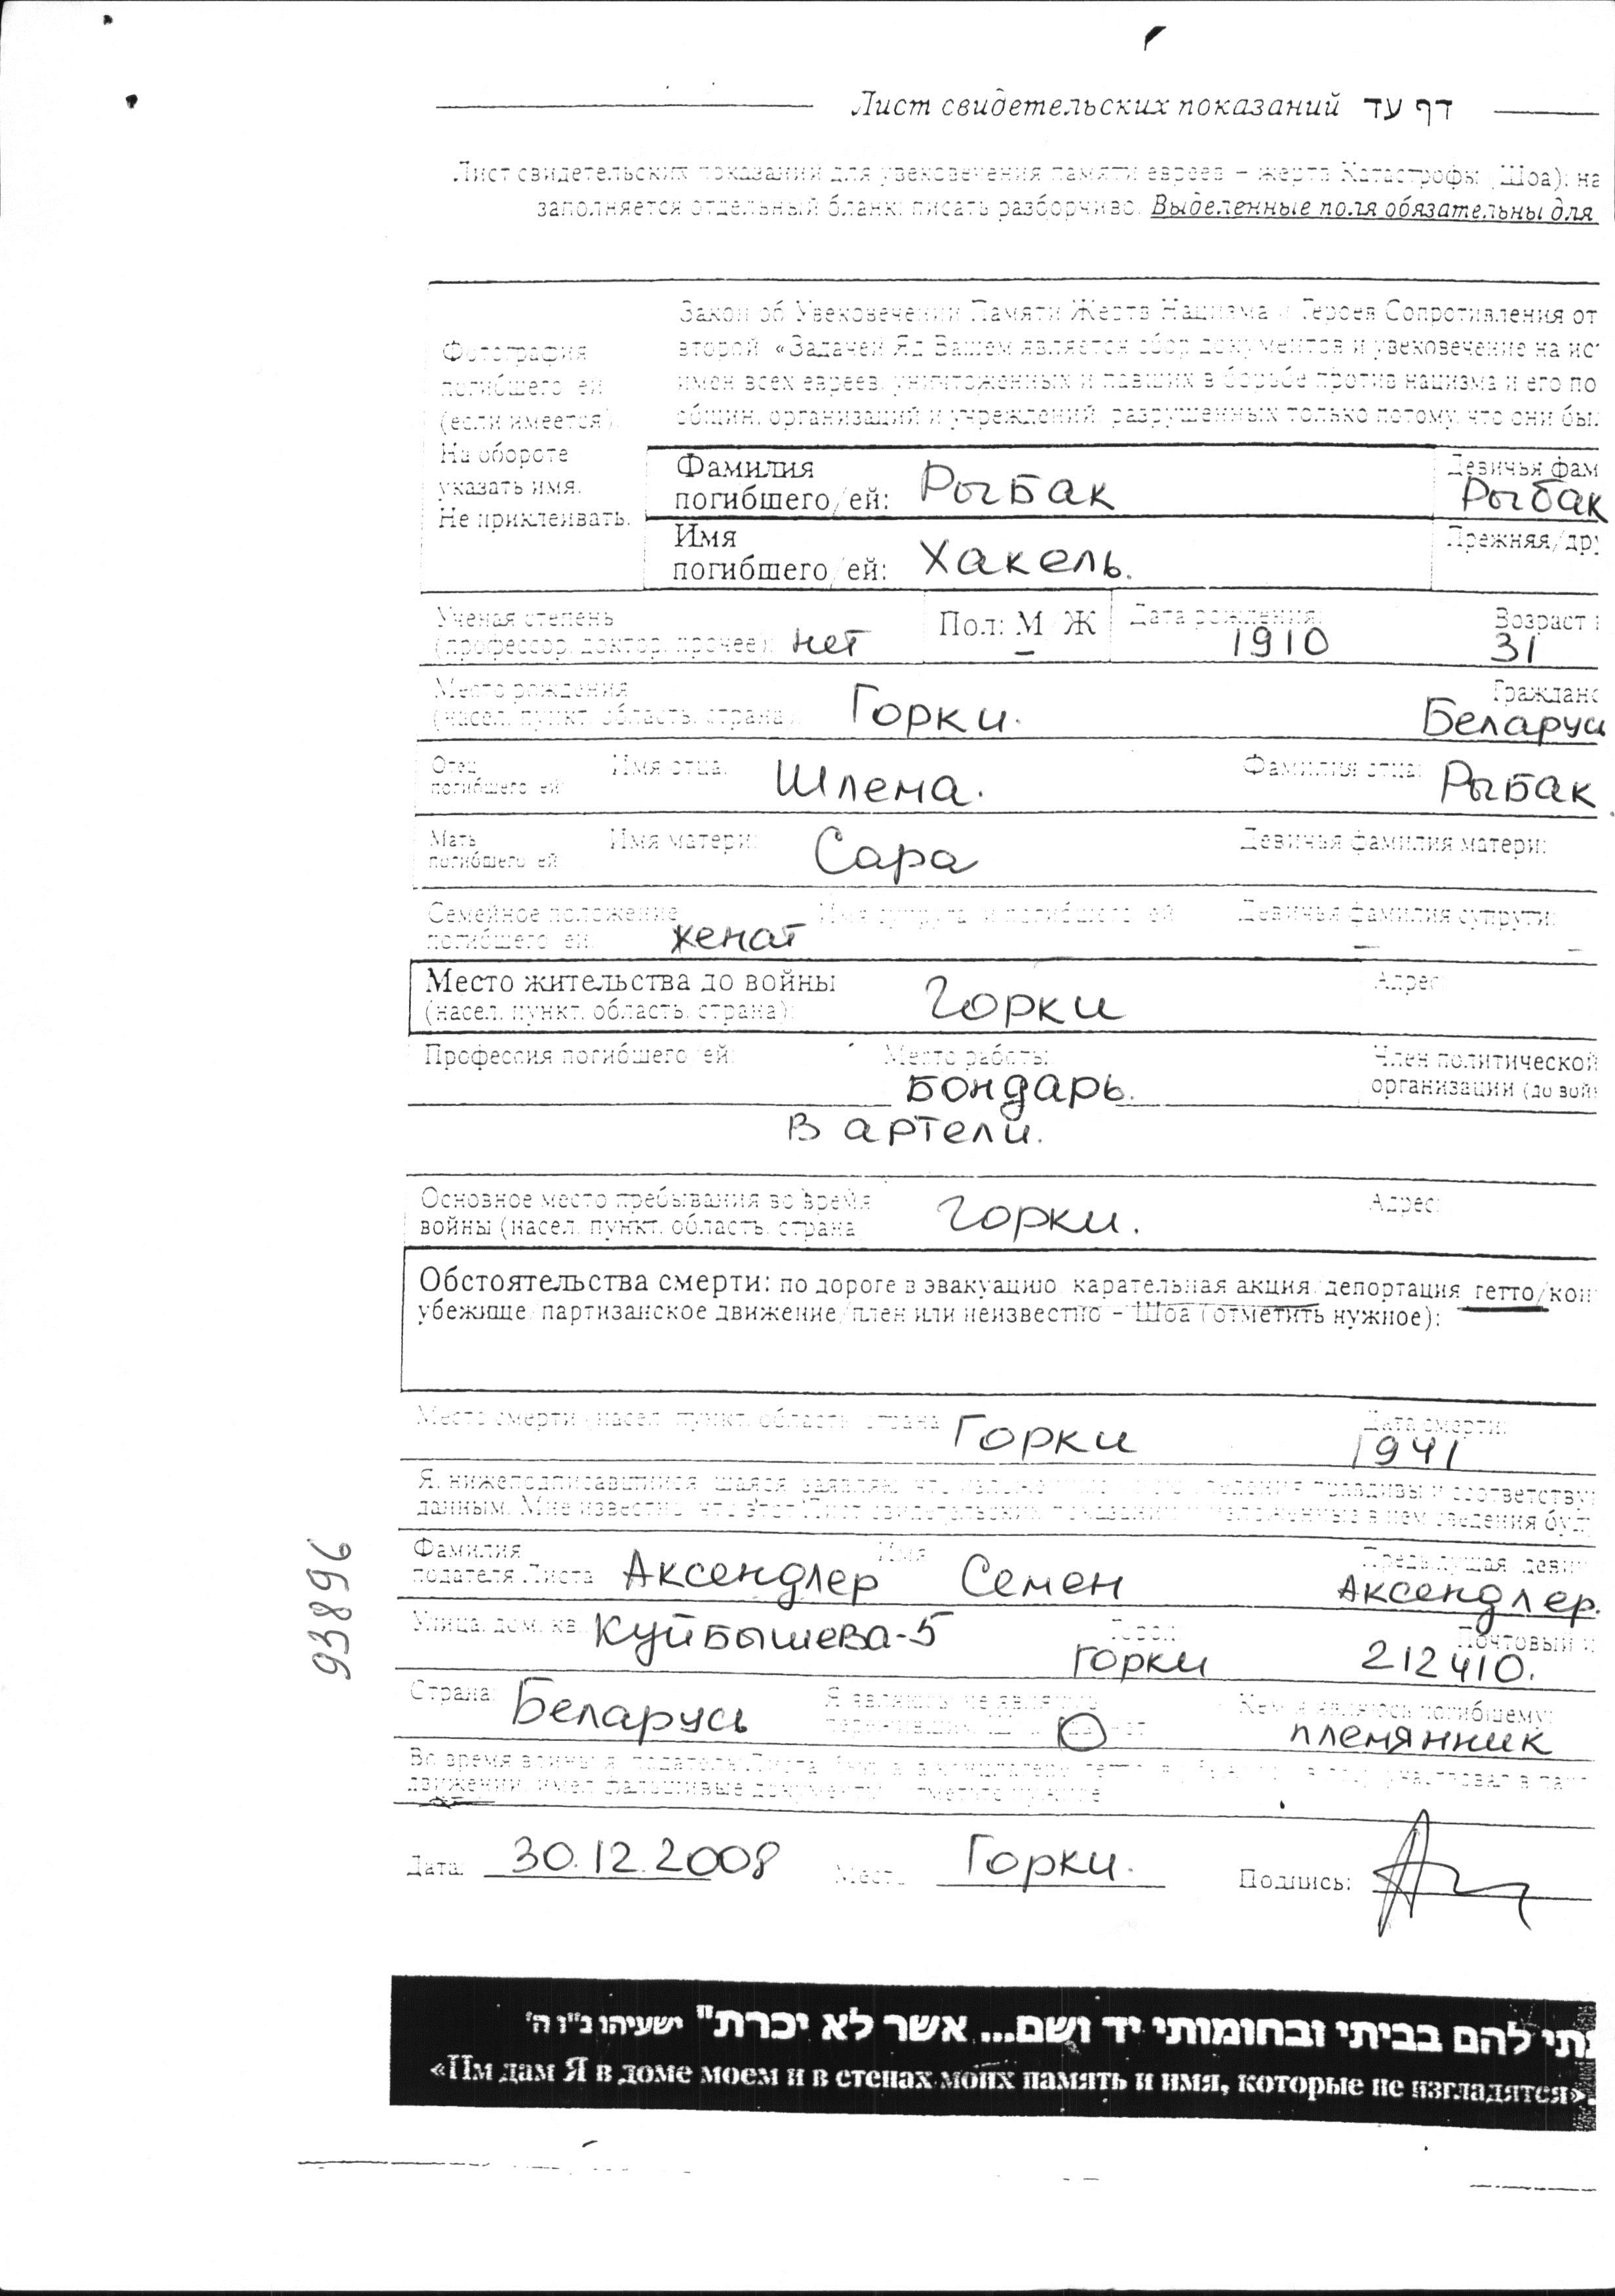 Лист свидетельских показаний דף עד
Лист свидетельских показаний для увековечения памяти евреев – жертв Катастрофы (Шоа); на
заполняется отдельный бланк; писать разборчиво. Выделенные поля обязательны для
Закон об Увековечении Памяти Жертв Нацизма и Героев Сопротивления от
второй: «Задачей Яд Вашем является сбор документов и увековечение на ис
имен всех евреев, уничтоженных и павших в борьбе против нацизма и его по
общин, организаций и учреждений, разрушенных только потому, что они бы
Фотография
погибшего/ей
(если имеется).
На обороте
указать имя.
Не приклеивать.
Фамилия
погибшего/ей: Рыбак
Девичья фам
Рыбак
Имя
погибшего/ей: Хакель.
Прежняя/дру
Ученая степень
(профессор, доктор, прочее): нет
Пол: М/Ж
Дата рождения:
1910
Возраст
31
Место рождения
(насел. пункт, область, страна): Горки.
Гражданс
Беларуси
Отец
погибшего/ей
Имя отца: Шлема.
Фамилия отца: Рыбак
Мать
погибшего/ей
Имя матери: Сара
Девичья фамилия матери:
Семейное положение
погибшего/ей: женат
Имя супруга/и погибшего/ей
Девичья фамилия супруги:
– –
Место жительства до войны
(насел. пункт, область, страна): Горки
Адрес:
Профессия погибшего/ей:
Место работы:
Бондарь.
В артели.
Член политической
организации (до вой
Основное место пребывания во время
войны (насел. пункт, область, страна Горки.
Адрес:
Обстоятельства смерти: по дороге в эвакуацию/карательная акция/депортация/гетто/кон
убежище/партизанское движение/плен или неизвестно – Шоа (отметить нужное):
Место смерти (насел. пункт, область, страна Горки
Дата смерти:
1941
Я, нижеподписавшийся/шаяся, заявляю, что сведения правдивы и соответству
данным. Мне известно, что этот Лист свидетельских показаний в нем сведения буд
Фамилия
подателя Листа Аксендлер
Имя Семен
Предыдущая/девич
Аксендлер.
Улица, дом, кв. Куйбышева-5
Город:
Горки
Почтовый и
212410.
Страна: Беларусь
Я являюсь/не являюсь
Кем я являюсь погибшему:
племянник
Во время войны я, податель Листа, был участвовал в
движении, имел фальшивые документы
Дата: 30.12.2008
Место Горки.
Подпись:
93896
תי להם בביתי ובחומותי יד ושם... אשר לא יכרת" ישעיהו נ"ו ה'
«Им дам Я в доме моем и в стенах моих память и имя, которые не изгладятся».